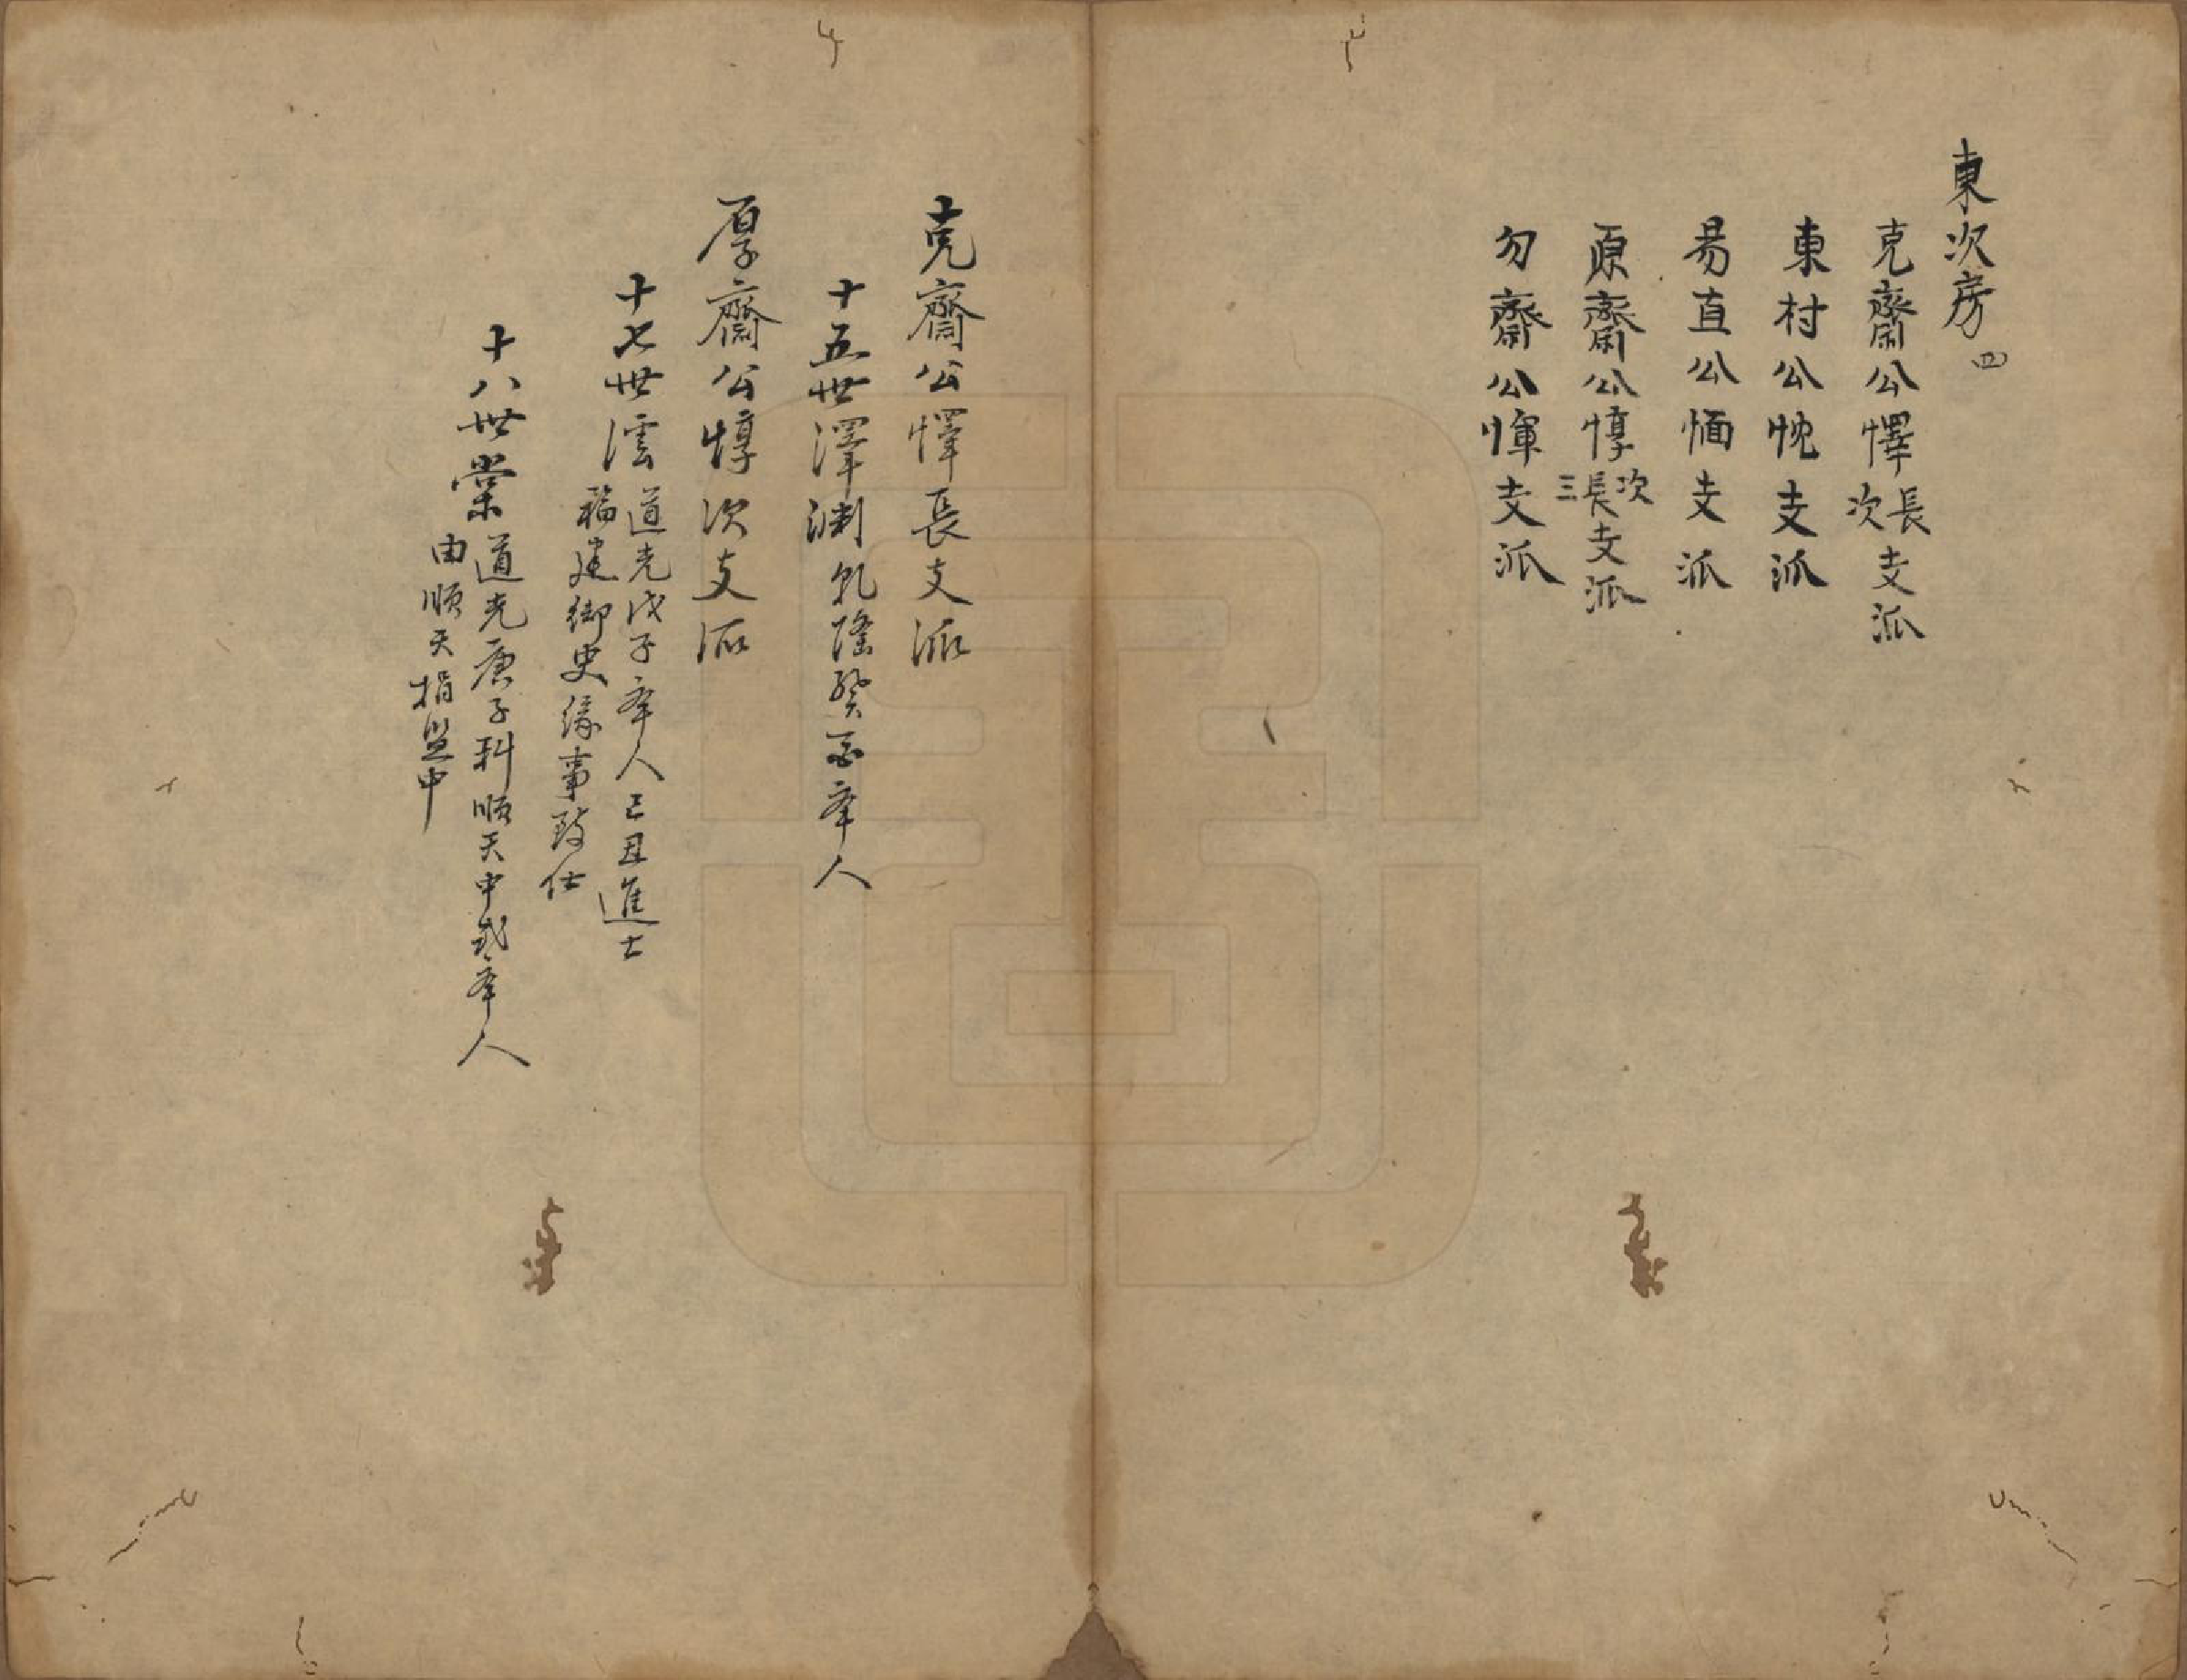 東次房四
克齋公懌長次支派
東村公忱支派
易直公愐支派
原齋公惇次長三支派
勿齋公惲支派
克齋公懌長支派
十五世澤渊乾隆癸酉举人
厚齋公惇次支派
十七世澐道光戊子举人己丑進士
福建御史缘事致仕
十八世棠道光庚子科順天中式举人
由順天捐監中